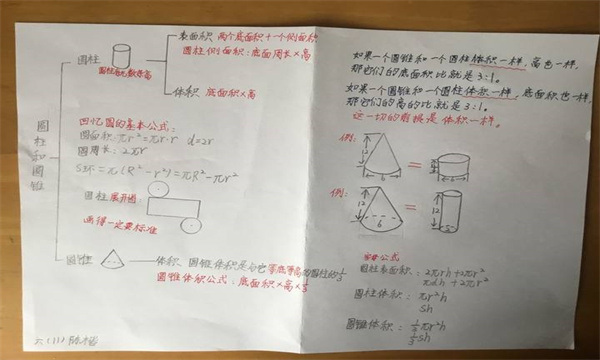 圆柱和圆锥
圆柱
圆柱有无数条高
表面积 两个底面积+一个侧面积
圆柱侧面积:底面周长×高
体积 底面积×高
回忆圆的基本公式:
圆面积:πr²=πr·r d=2r
圆周长:2πr
S环=π(R²-r²)=πR²-πr²
圆柱展开图
画得一定要标准
体积 圆锥体积是与它等底等高的圆柱的1/3
圆锥体积公式:底面积×高×1/3
如果一个圆锥和一个圆柱体积一样,高也一样,
那它们的底面积比就是3:1。
如果一个圆锥和一个圆柱体积一样,底面积也一样,
那它们的高的比就是3:1。
这一切的前提是体积一样。
例:
12
6
=
例:
12
6
=
12
公式
圆柱表面积:2πrh+2πr²
πdh+2πr²
圆柱体积:πr²h
Sh
圆锥体积:1/3πr²h
1/3Sh